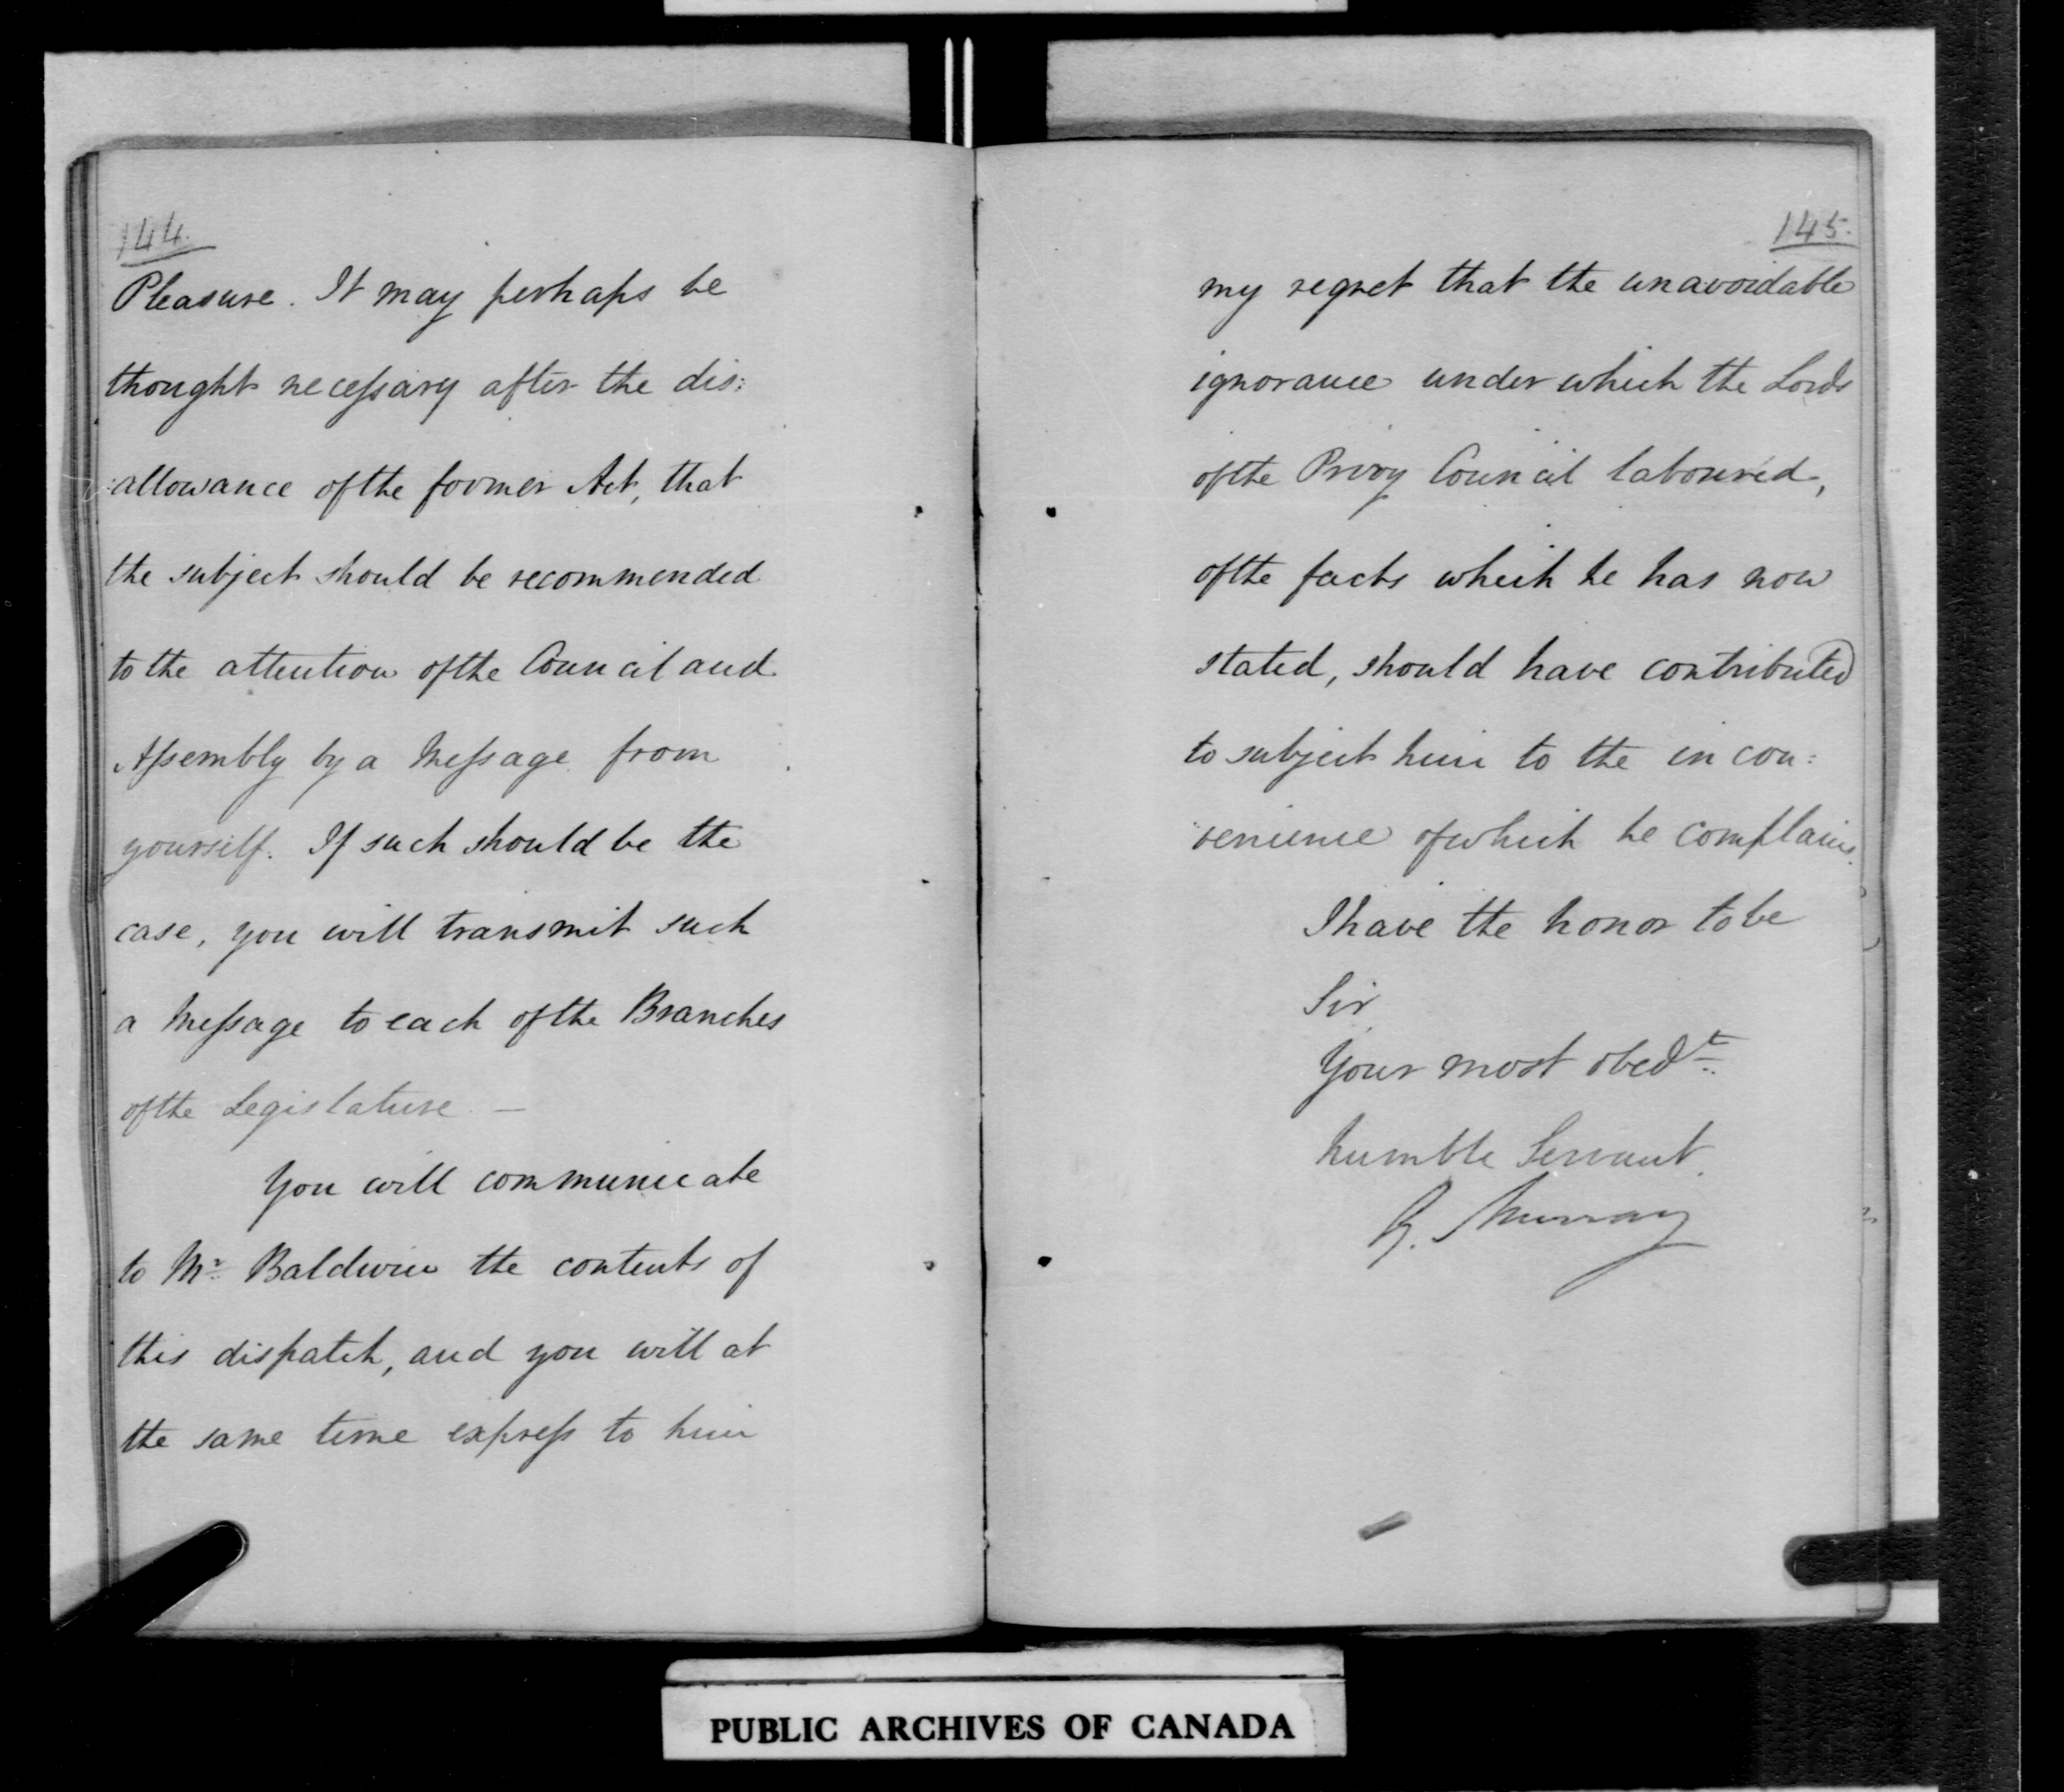 144.
Pleasure. It may perhaps be
thought necessary after the dis:
:allowance of the former Act, that
the subject should be recommended
to the attention of the Council and
Assembly by a Message from
yourself. If such should be the
case, you will transmit such
a Message to each of the Branches
of the Legislature. —
You will communicate
to Mr. Baldwin the contents of
this dispatch, and you will at
the same time express to him
145.
my regret that the unavoidable
ignorance under which the Lords
of the Privy Council laboured,
of the facts which he has now
stated, should have contributed
to subject him to the incon:
:venience of which he complains.
I have the honor to be
Sir
Your most obedt.
humble Servant.
G. Murray
PUBLIC ARCHIVES OF CANADA